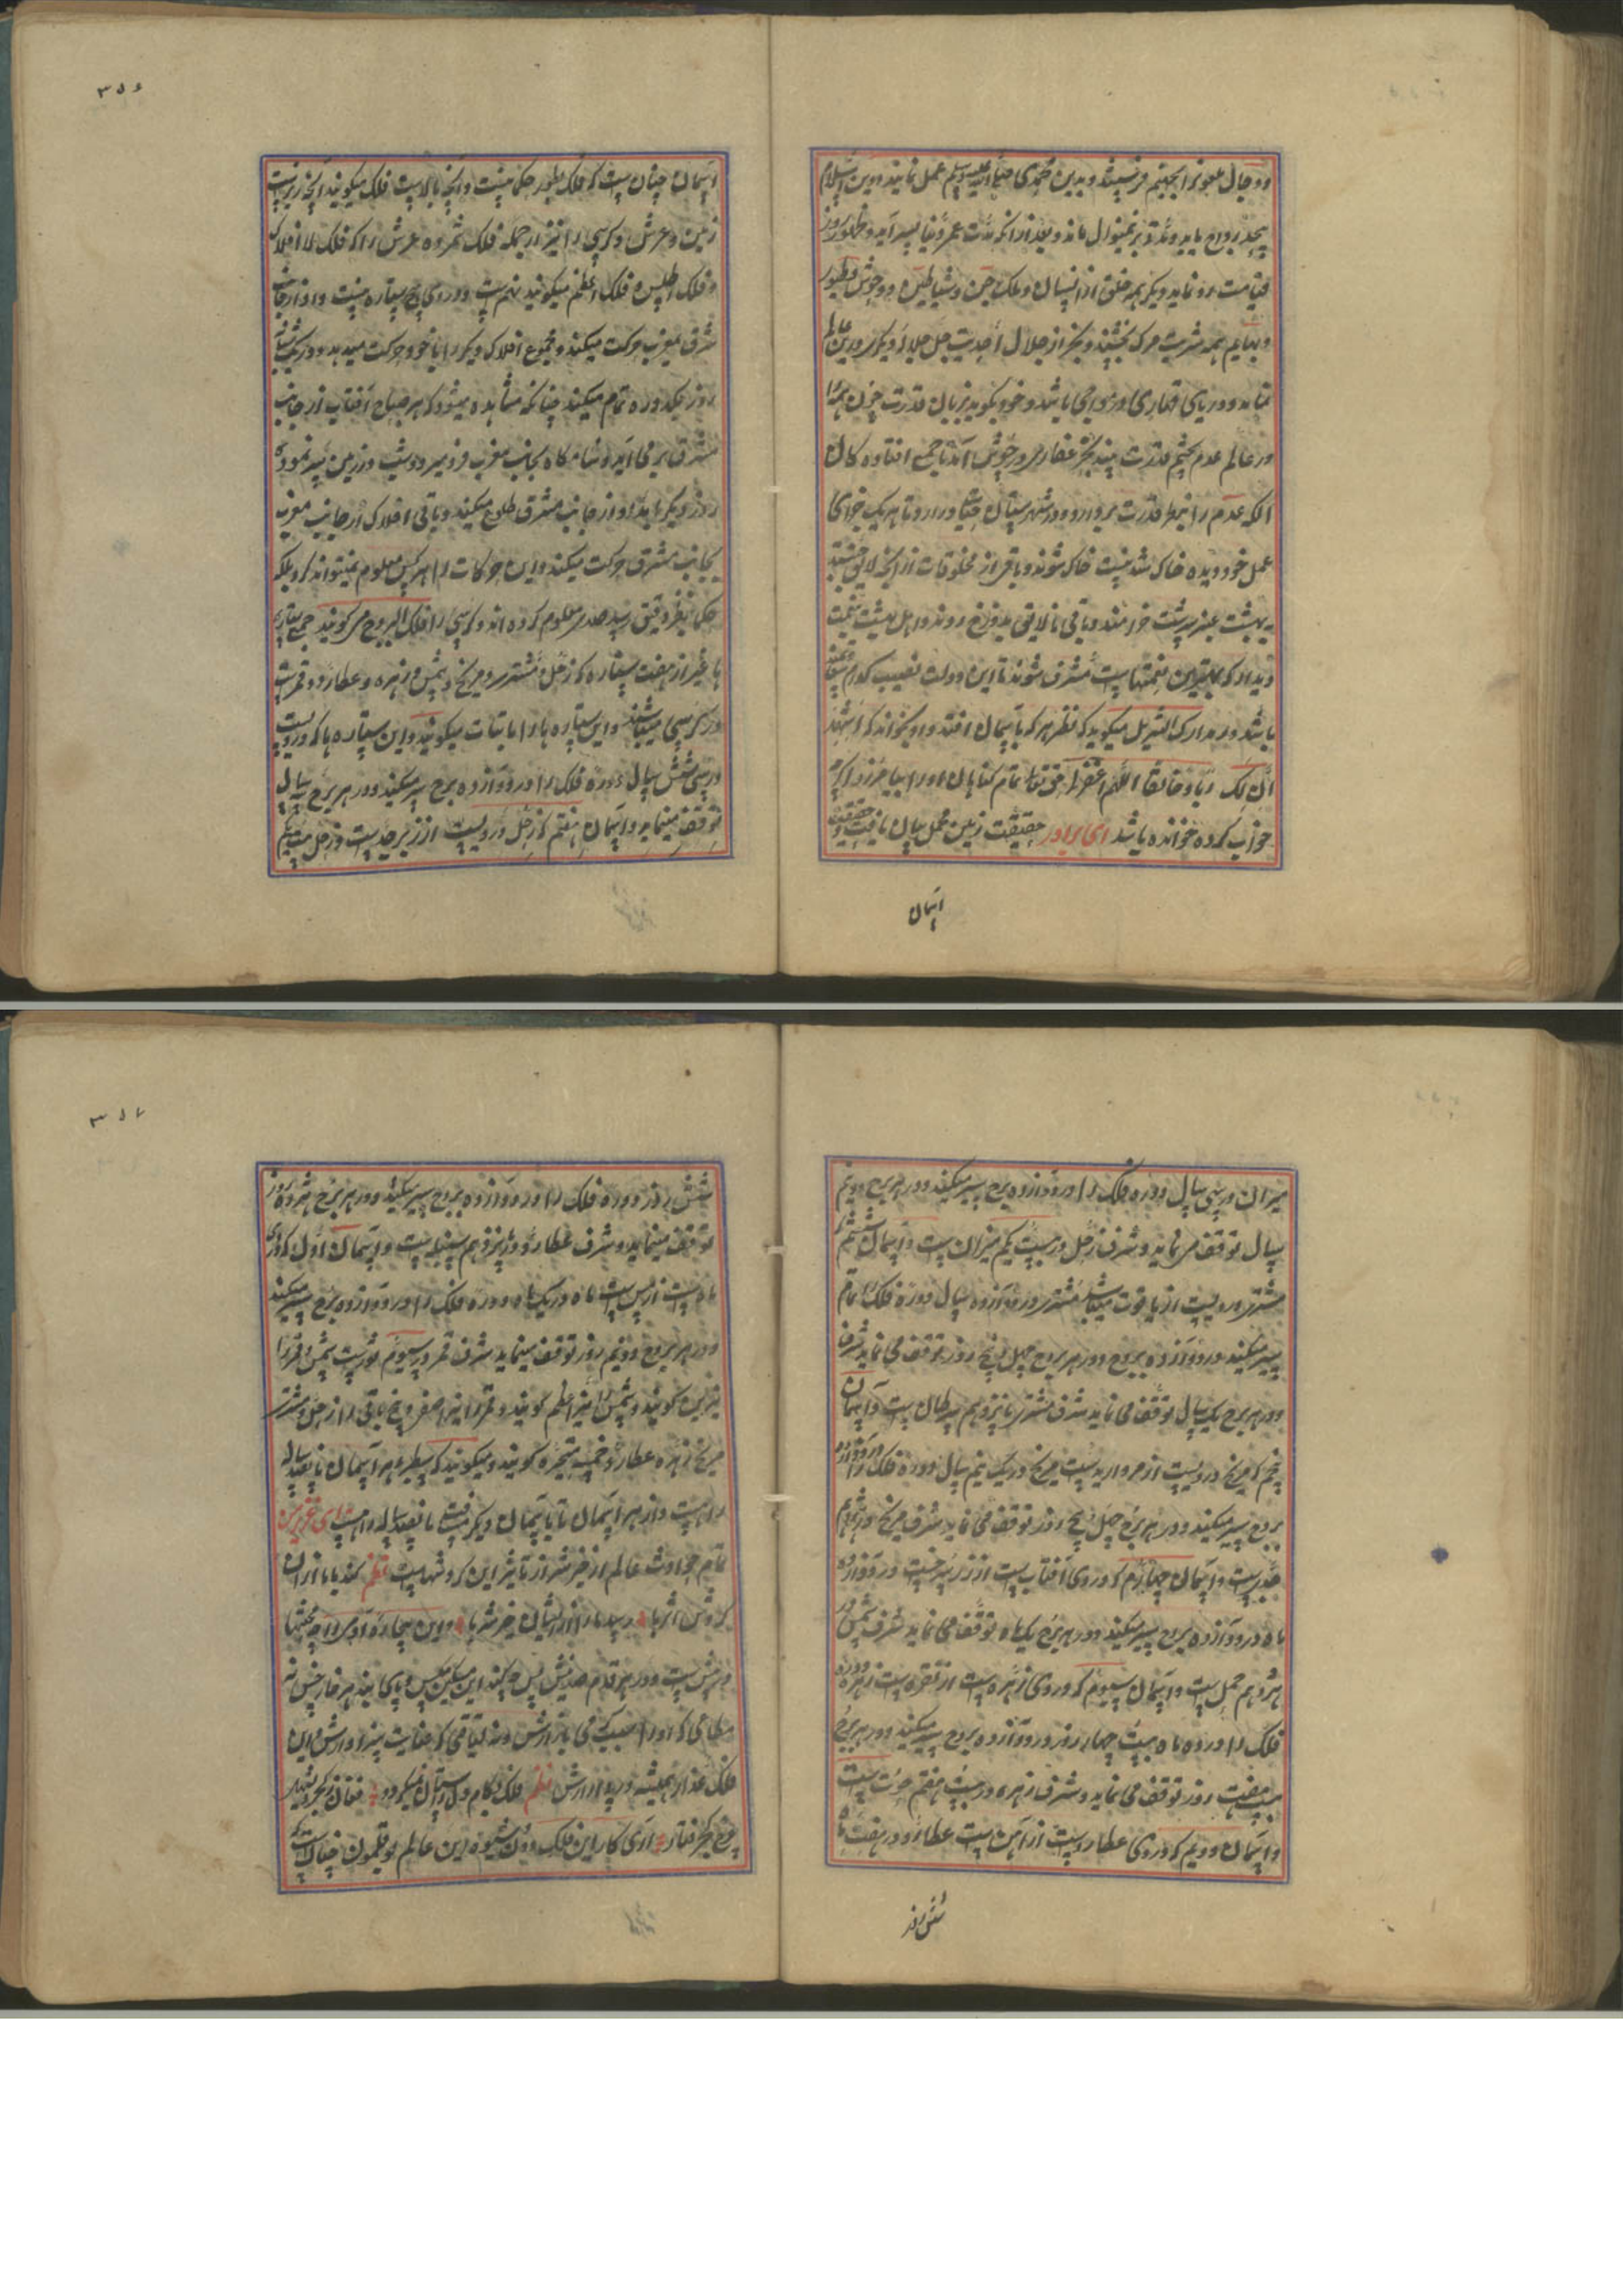 ودجال ملعون را بجهنم فرستند و بدین محمدی صلی الله علیه وسلم عمل نمایند و دین اسلام
بحد رواج یابد و مدة برینمنوال ماند و بعد از آنکه مدت عمر دنیا بسر آید و ظهور روز
قیامت رو نماید دیگر همه خلق از انسان و ملک و جن و شیاطین و وحوش و طیور
و بهایم همه شربت مرک بچشند و بجز از جلال احدیت جل جلاله دیگر درین عالم
نماند و دریای قهاری در مواجی باشد و خود بخود بزبان قدرت چون همه را
در عالم عدم بچشم قدرت بیند بحر غفاری در جوش آمد تا جمیع افتاده کان
الکه عدم را بنظر قدرت بردارد و در شهرستان حیات در آرد و تا هر یک جزای
عمل خود دیده خاک شدنیست خاک شوند و باقی از مخلوقات از آنچه لایق بهشتند
به بهشت عنبر سرشت خرامند و باقی نالایق بدوزخ روند و اهل بهشت بنعمت
دیدار که بهترین نعمتهاست مشرف شوند تا این دولت نصیب کدام سعادتمند
باشد و در مدارک التنزیل میگوید که نظر هر که باسمان افتد و او بخواند که اشهد
ان لک ربا و خالقا اللهم اغفر لی حق تعالی تمام کناهان او را بیامرزد اگر
خواب کرده خوانده باشد ای برادر حقیقت زمین مجمل بیان یافت و حقیقت
اسمان
۳۵۶
اسمان چنان ست که فلک بطور حکما نیست و آنچه بالاست فلک میگویند آنچه زیرست
زمین و عرش و کرسی را نیز از جمله فلک شمرده عرش را که فلک الافلاک
و فلک اطلس و فلک اعظم میگویند نهم ست و در وی هیچ ستاره نیست و او از جانب
شرق بمغرب حرکت میکند و مجموع افلاک دیگر را با خود حرکت میدهد و در یک شبانه
روز یکدوره تمام میکند چنانکه مشاهده میشود که هر صباح آفتاب از جانب
مشرق بر می آید و شامگاه بجانب مغرب فرو میرود و شب در زمین سیر نموده
روز دیگر بامداد از جانب مشرق طلوع میکند و باقی افلاک از جانب مغرب
بجانب مشرق حرکت میکند و این حرکات را هر کس معلوم نمیتواند کرد بلکه
حکما بنظر دقیق رسید صدی معلوم کرده اند و کرسی را فلک البروج می گویند جمیع ستاره
ها غیر از هفت ستاره که زحل و مشتری و مریخ و شمس و زهره و عطارد و قمرست
در کرسی میباشند و این ستاره ها را ثابتات میگویند و این ستاره ها که در ویست
در سی شش سال دوره فلک را در دوازده برج سیر میکنند و در هر برج سه سال
توقف مینماید و اسمان هفتم که زحل در ویست از زبرجدست و زحل
میزان در سی سال دوره فلک را در دوازده برج سیر میکند و در هر برج دو نیم
سال توقف می نماید و شرف زحل در بیست یکم میزان ست و آسمان ششم
مشتری در ویست از یاقوت میباشد مشتری در دوازده سال دوره فلک را تمام
سیر میکند در دوازده بروج و در هر بروج چهل پنج روز توقف می نماید شرف
و در هر برج یک سال توقف می نماید شرف مشتری پانزدهم سرطان ست و آسمان
پنجم که مریخ در ویست از مرواریدست مریخ در یک نیم سال دوره فلک را در دوازده
بروج سیر میکند و در هر برج چهل پنج روز توقف می نماید شرف مریخ در بیست هشتم
جدیست و آسمان چهارم که در وی آفتاب ست از زر سرخست در دوازده
ماه در دوازده بروج سیر میکند و در هر برج یک ماه توقف می نماید شرف شمس در
هژدهم حمل ست و آسمان سیوم که در وی زهره ست از نقره ست زهره دوره
فلک را در ده ماه بیست چهار روز در دوازده بروج سیر میکند و در هر برج
بیست هفت روز توقف می نماید و شرف زهره در بیست هفتم حوت ست
و اسمان دویم که در وی عطاردست از آهن ست عطارد در هفت ماه
شش روز
۳۵۷
شش روز دوره فلک را در دوازده بروج سیر میکند و در هر برج هژده روز
توقف مینماید و شرف عطارد در پانزدهم سنبله ست و اسمان اول که در وی
ماه ست از مس ست ماه در یک ماه دوره فلک را در دوازده برج سیر میکند
و در هر بروج دو نیم روز توقف مینماید شرف قمر در سیوم ثورست شمس و قمر را
نیرین گویند و شمس را نیر اعظم گویند و قمر را نیر اصغر و پنج باقی را از زحل و مشتری
مریخ زهره عطارد خمسه متحیره گویند و میگویند که سطبری هر آسمان پانصد ساله
راه ست و از هر آسمان تا باسمان دیگر مسافت پانصد ساله راه ست ای عزیز من
تمام حوادث عالم از خیر شر از تاثیر این کردشهاست نظم کند یا ما از ان
کردش اثرها رسد مارا از ایشان خیر شرها و این بیچاره آدمی را چه محنتها
در پیش ست و در هر قدم صد نیش پس چکند این مسکین بیکس و پای بند هر خار خس نه
فلک غدار همیشه در پی آزارش نظم فلک بکام دل دوستان نمیگردد فغان ز کجروی
چرخ کج رفتار آری کار این فلک دون شیوه این عالم بوقلمون چنان ست که